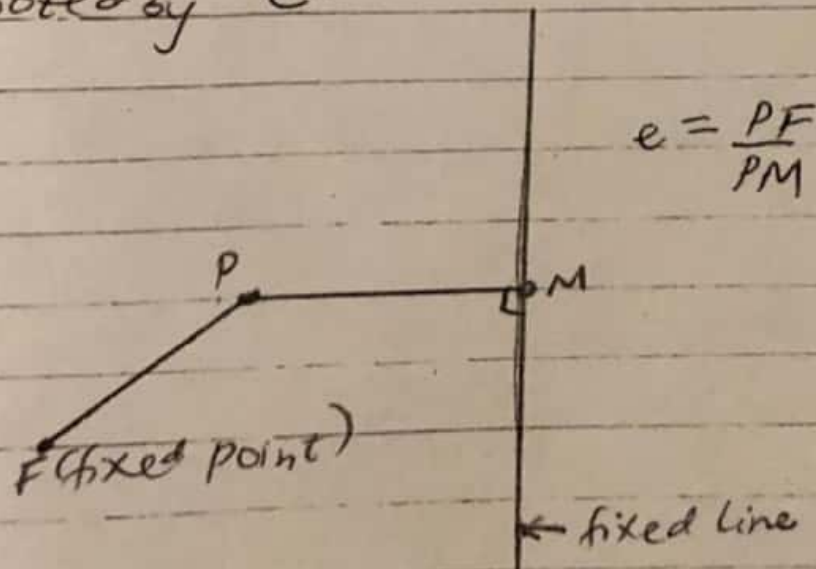 by e
e = PF
PM
P
M
F (fixed point)
← fixed line